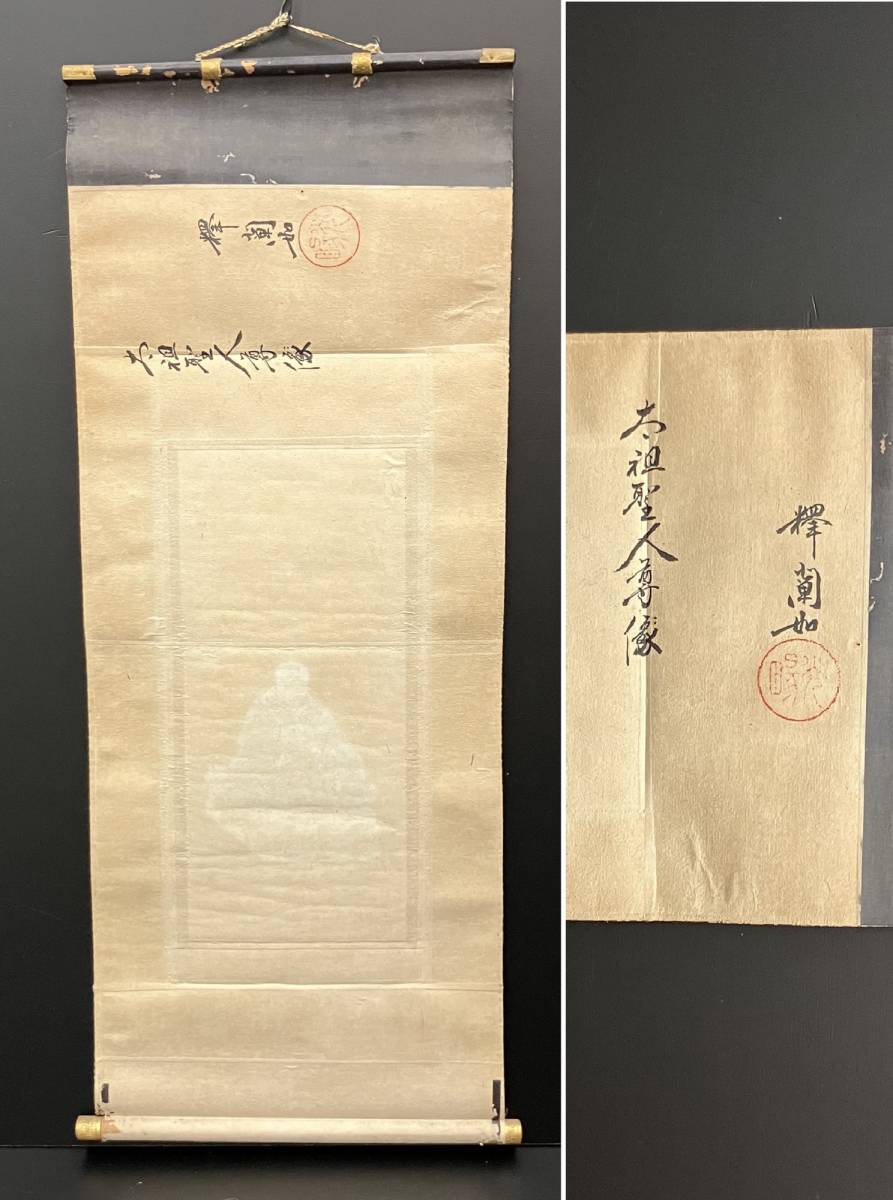 釋闡如
太祖聖人尊像
釋闡如
太祖聖人尊像